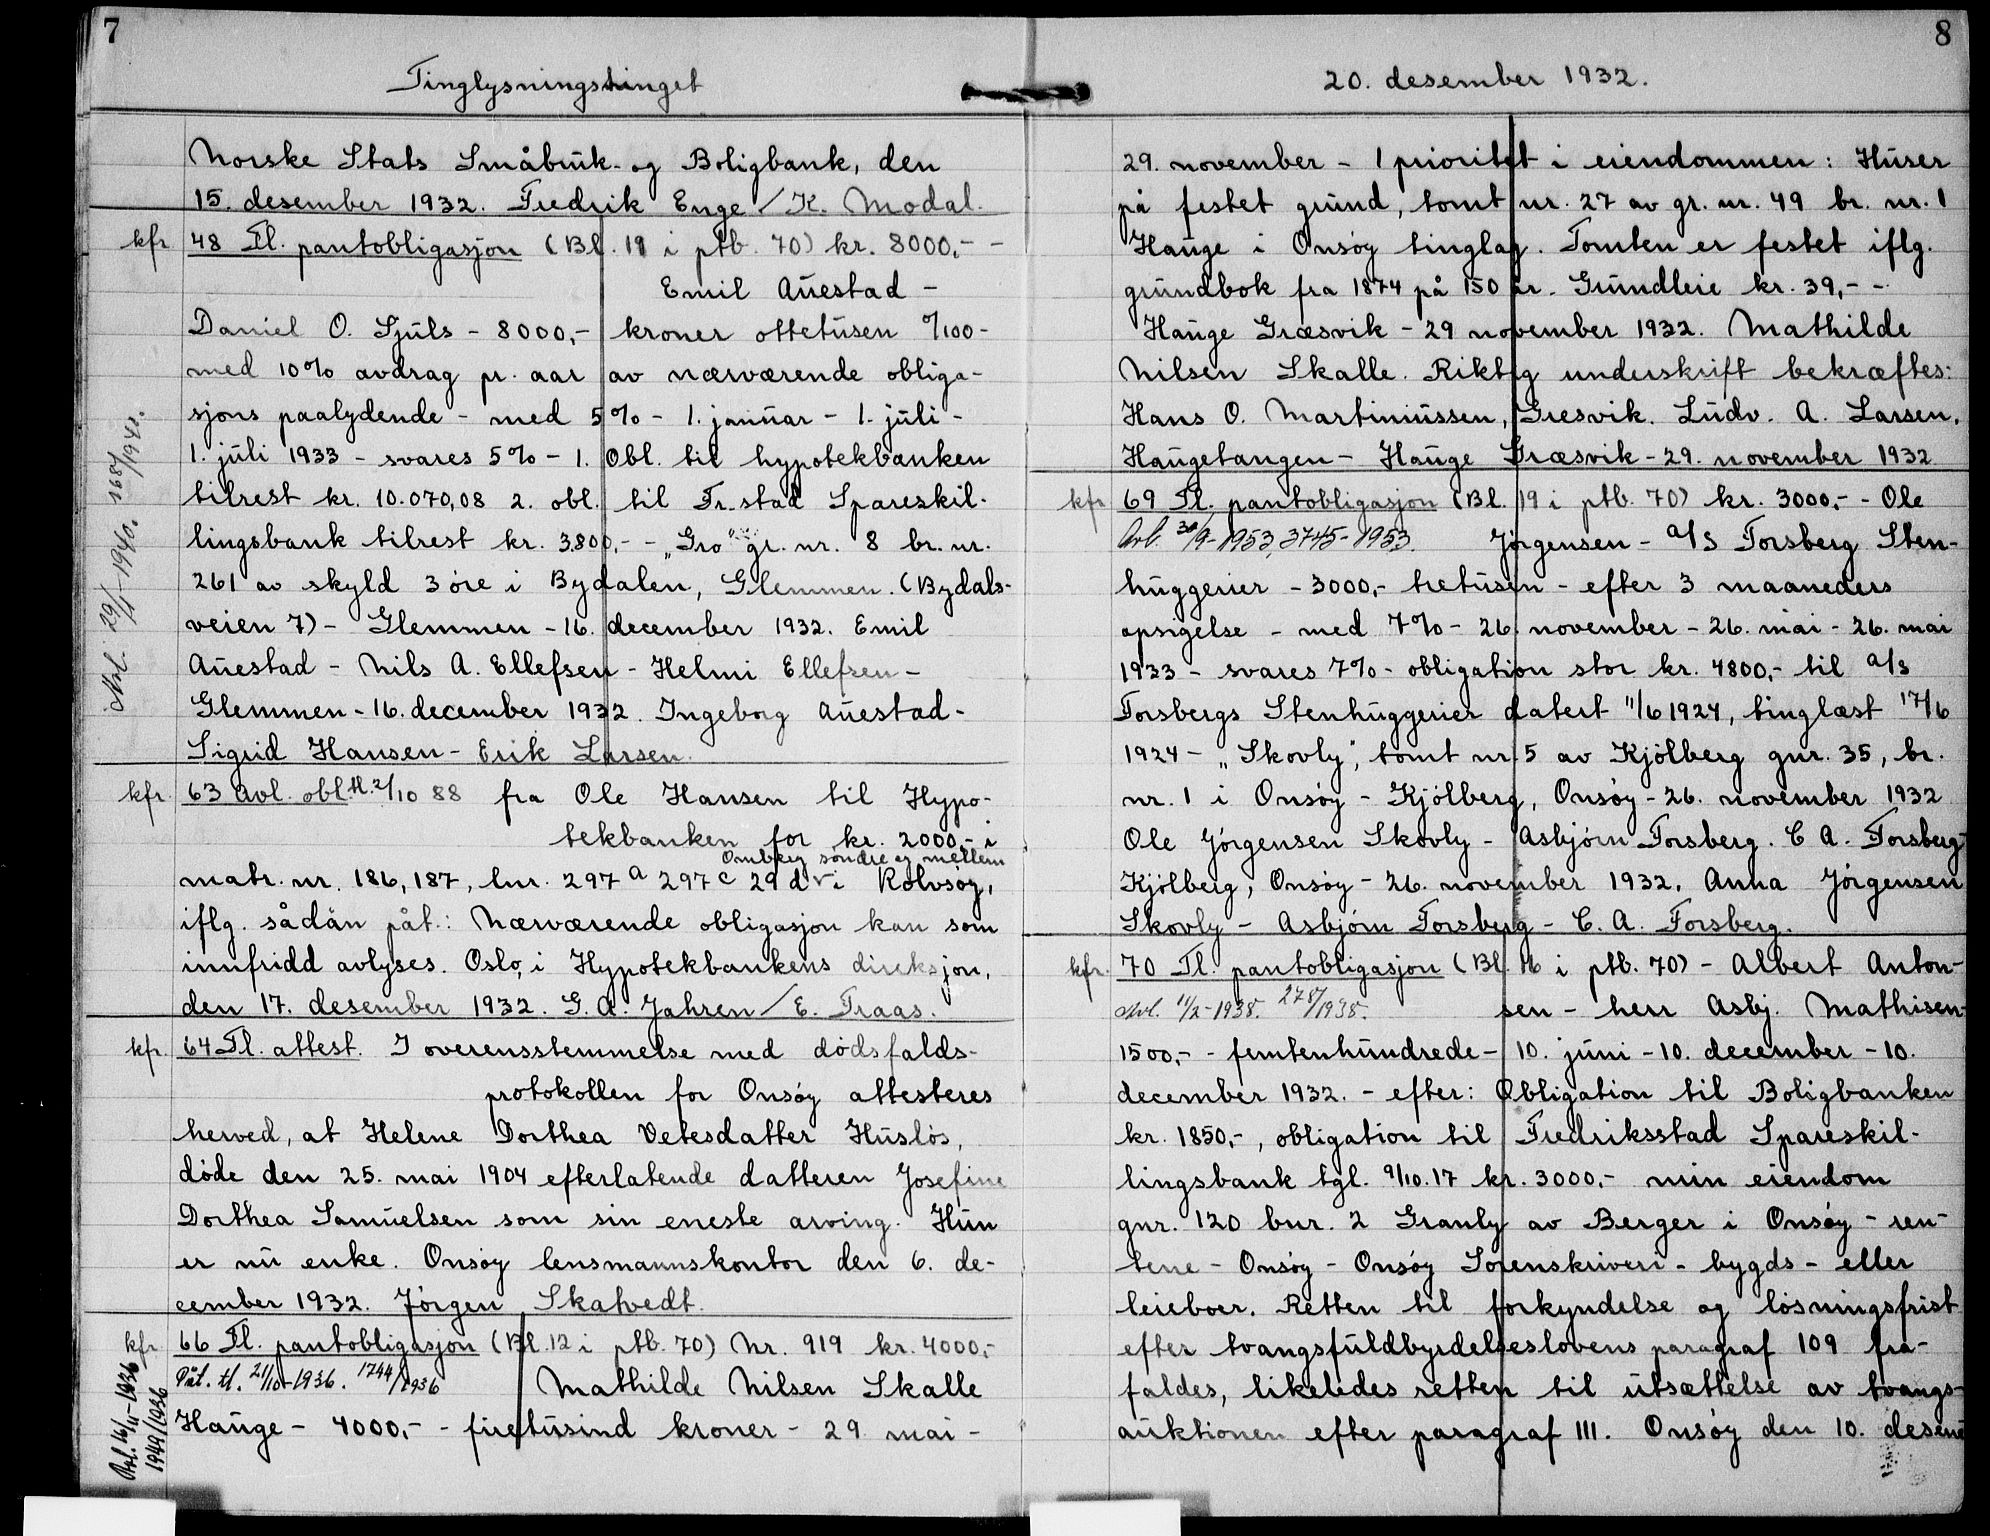 7
Tinglysningstinget
Norske Stats Småbruk- og Boligbank, den
15. desember 1932. Fredrik Enge / K. Modal.
kfr 48 Tl. pantobligasjon (Bl. 19 i ptb. 70) kr. 8000,- -
Emil Auestad -
Daniel O. Sjuls - 8000,- kroner ottetusen 0/100 -
med 10% avdrag pr. aar av nærværende obliga-
sjons paalydende - med 5% - 1. januar - 1. juli -
1. juli 1933 - svares 5% - 1. Obl. til hypotekbanken
tilrest kr. 10.070,08 2. obl. til Fr.stad Spareskil-
lingsbank tilrest kr. 3.800,- - „Gro" gr. nr. 8 br. nr.
261 av skyld 3 øre i Bydalen, Glemmen. (Bydals-
veien 7) - Glemmen - 16. december 1932. Emil
Auestad - Nils A. Ellefsen - Helmi Ellefsen -
Glemmen - 16. december 1932. Ingeborg Auestad -
Sigrid Hansen - Erik Larsen.
Avl. 29/1-1940. 168/1940.
kfr. 63 Avl. obl. tl. 2/10 88 fra Ole Hansen til Hypo-
tekbanken for kr. 2000,- i
Omberg søndre og mellem
matr. nr. 186, 187, lnr. 297 a 297 c 29 d v i Rolvsøy,
iflg. sådan påt.: Nærværende obligasjon kan som
innfridd avlyses. Oslo, i Hypotekbankens direksjon,
den 17. desember 1932. G. A. Jahren / E. Traas.
kfr. 64 Tl. attest. I overensstemmelse med dødsfalds-
protokollen for Onsøy attesteres
herved, at Helene Dorthea Vetesdatter Husløs,
døde den 25. mai 1904 efterlatende datteren Josefine
Dorthea Samuelsen som sin eneste arving. Hun
er nu enke. Onsøy lensmannskontor den 6. de-
cember 1932. Jørgen Skatvedt.
kfr 66 Tl. pantobligasjon (Bl. 12 i ptb. 70) Nr. 919 kr. 4000,-
Påt. tl. 21/10-1936. 1744/1936 Mathilde Nilsen Skalle
Hauge - 4000,- - firetusind kroner - 29 mai -
Avl. 16/11-1936
1949/1936
8
20. desember 1932.
29. november - 1 prioritet i eiendommen: Huser
på festet grund, tomt nr. 27 av gr. nr. 49 br. nr. 1
Hauge i Onsøy tinglag. Tomten er festet iflg.
grundbok fra 1874 på 150 år. Grundleie kr. 39,- -
Hauge Græsvik - 29 november 1932. Mathilde
Nilsen Skalle. Riktig underskrift bekræftes:
Hans O. Martiniussen, Gresvik. Ludv. A. Larsen,
Haugetangen - Hauge Græsvik - 29. november 1932
kfr 69 Tl. pantobligasjon (Bl. 19 i ptb. 70) kr. 3000,- - Ole
Avl. 30/9-1953, 3745-1953. Jørgensen - A/S Forsberg Sten-
huggerier - 3000,- tretusen - efter 3 maaneders
opsigelse - med 7% - 26. november - 26. mai - 26. mai
1933 - svares 7% - obligation stor kr. 4800,- til A/S
Forsbergs Stenhuggerier datert 11/6 1924, tinglæst 17/6
1924 - „Skovly", tomt nr. 5 av Kjölberg gnr. 35, br.
nr. 1 i Onsøy - Kjölberg, Onsøy - 26. november 1932
Ole Jørgensen Skovly - Asbjørn Forsberg. C A. Forsberg -
Kjölberg, Onsøy - 26. november 1932. Anna Jørgensen
Skovly - Asbjørn Forsberg - C. A. Forsberg.
kfr. 70 Tl. pantobligasjon (Bl. 16 i ptb. 70) - Albert Anton-
Avl. 11/2-1938. 278/1938. sen - herr Asbj. Mathisen -
1500,- - femtenhundrede - 10. juni - 10. december - 10.
december 1932. - efter: Obligation til Boligbanken
kr. 1850,-, obligation til Fredriksstad Spareskil-
lingsbank tgl. 9/10.17 kr. 3000,- min eiendom
gnr. 120 bnr. 2 Granly av Berger i Onsøy - ren-
tene - Onsøy - Onsøy Sorenskriveri - bygds- eller
leieboer. Retten til forkyndelse og løsningsfrist
efter tvangsfuldbyrdelseslovens paragraf 109 fra-
faldes, likeledes retten til utsættelse av tvangs-
auktionen efter paragraf 111. Onsøy den 10. desem